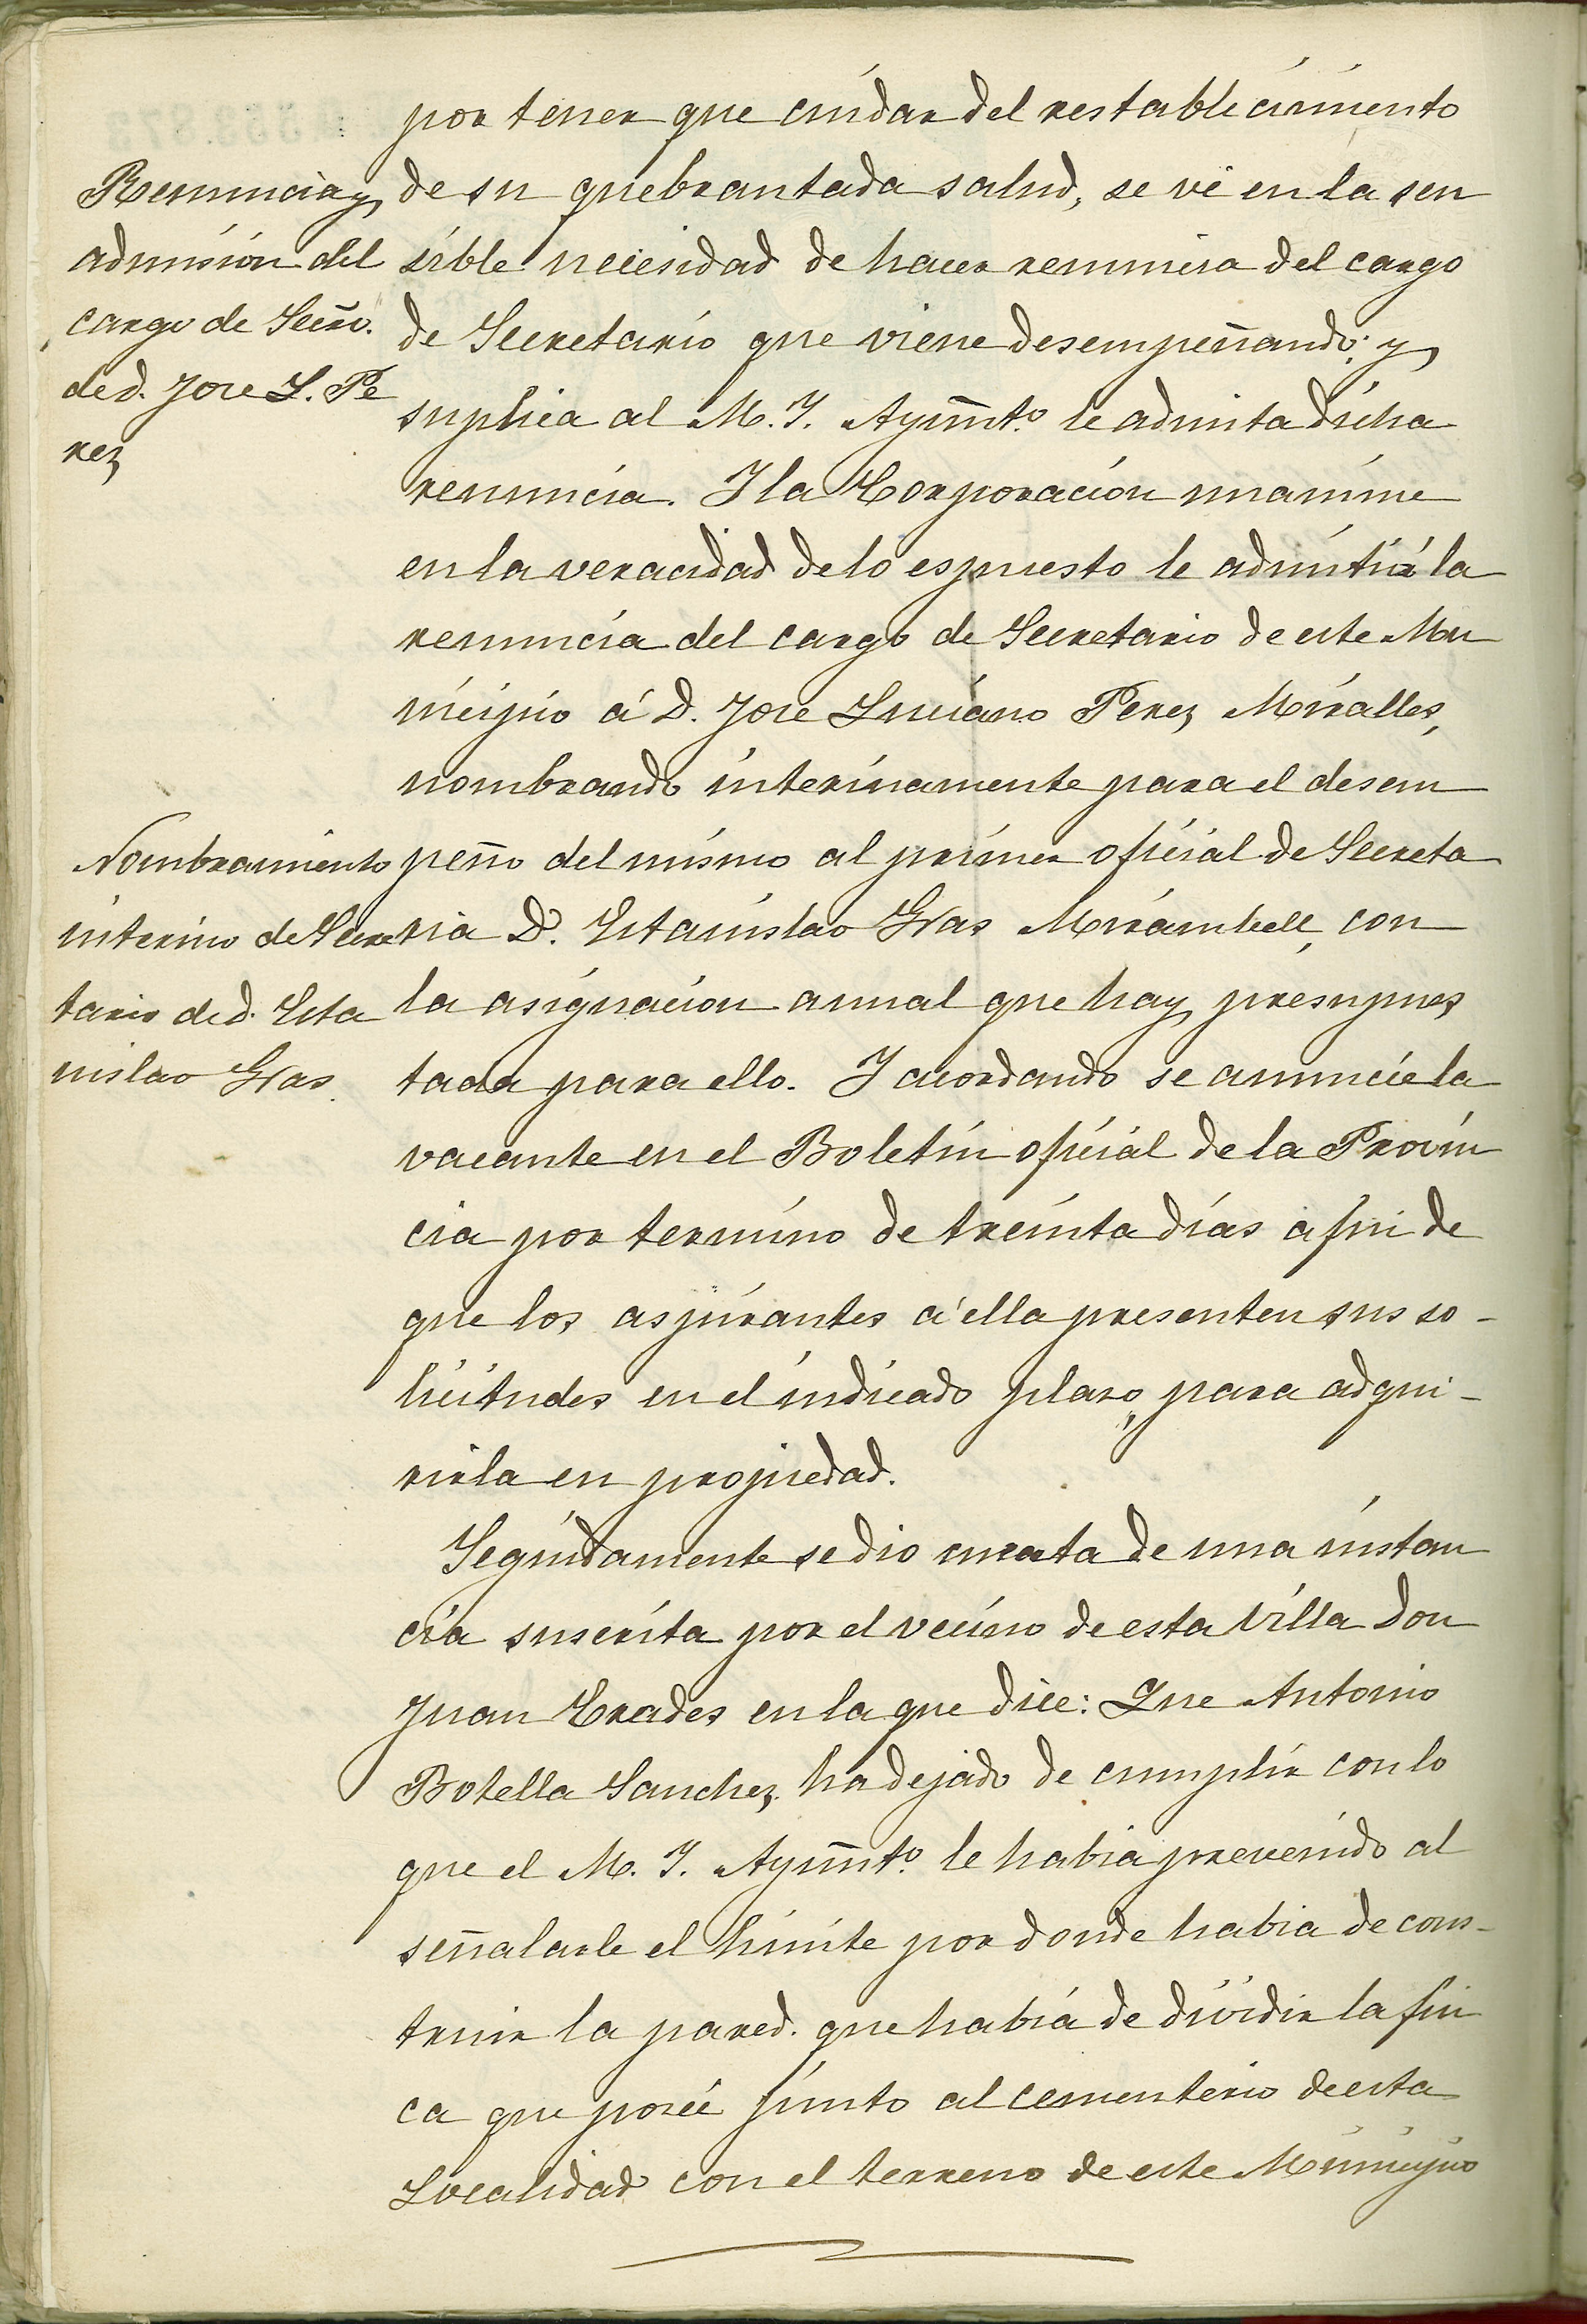 por tener que cuidar del restablecimiento
Renuncia y
admisión del
cargo de Secrio.
de d. Jose L. Pe
rez
de su quebrantada salud, se vé en la sen
sible necesidad de hacer renuncia del cargo
de Secretario que viene desempeñando; y
suplica al M. I. Ayuntº le admita dicha
renuncia. Y la Corporación unanime
en la veracidad de lo espuesto le admitió la
renuncia del cargo de Secretario de este Mu
nicipio á D. Jose Luciano Perez Miralles,
nombrando interinamente para el desem
Nombramiento
interino de Secre
tario de d. Esta
nislao Gras.
peño del mismo al primer oficial de Secreta
ria D. Estanislao Gras Mirambell, con
la asignación anual que hay presupues
tada para ello. Y acordando se anuncie la
vacante en el Boletín oficial de la Provin
cia por termino de treinta días a fin de
que los aspirantes á ella presenten sus so-
licitudes en el indicado plazo, para adqui-
rirla en propiedad.
Seguidamente se dio cuenta de una instan
cia suscrita por el vecino de esta Villa Don
Juan Crades en la que dice: Que Antonio
Botella Sanchez ha dejado de cumplir con lo
que el M. I. Ayuntº le habia prevenido al
señalarle el limite por donde habia de cons-
truir la pared. que había de dividir la fin
ca que poseé junto al cementerio de esta
Localidad con el terreno de este Municipio